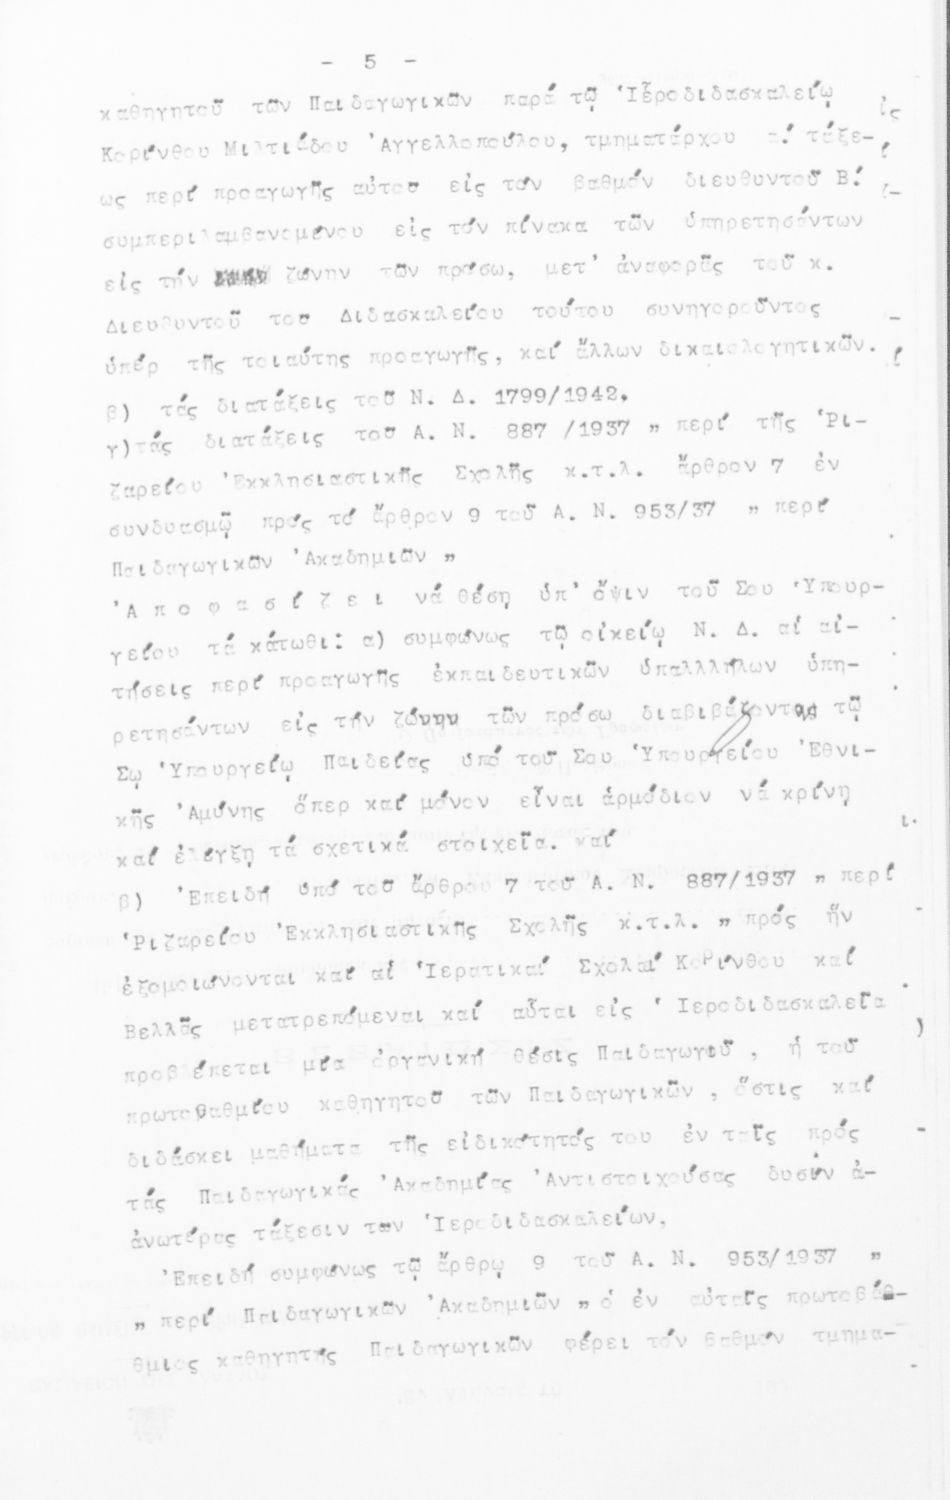 - 5 -
καθηγητοῦ τῶν Παιδαγωγικῶν παρά τῷ Ἱεροδιδασκαλείῳ
Κορίνθου Μιλτιάδου Ἀγγελλοπούλου, τμηματάρχου α.΄ τάξε-
ως περί προαγωγῆς αὐτοῦ εἰς τόν βαθμόν διευθυντοῦ Β.΄
συμπεριλαμβανομένου εἰς τόν πίνακα τῶν ὑπηρετησάντων
εἰς τήν ζώνην τῶν πρόσω, μετ' ἀναφορᾶς τοῦ κ.
Διευθυντοῦ του Διδασκαλείου τούτου συνηγοροῦντος
ὑπέρ τῆς τοιαύτης προαγωγῆς, καί ἄλλων δικαιολογητικῶν.
β) τάς διατάξεις τοῦ Ν. Δ. 1799/1942.
γ)τάς διατάξεις τοῦ Α. Ν. 887 /1937 „ περί τῆς Ῥι-
ζαρείου Ἐκκλησιαστικῆς Σχολῆς κ.τ.λ. ἄρθρον 7 ἐν
συνδυασμῷ πρός τό ἄρθρον 9 τοῦ Α. Ν. 953/37 „ περί
Παιδαγωγικῶν Ἀκαδημιῶν „
Ἀ π ο φ α σ ί ζ ε ι νά θέσῃ ὑπ' ὄψιν τοῦ Σου Ὑπουρ-
γείου τά κάτωθι: α) συμφώνως τῷ οἰκείῳ Ν. Δ. αἱ αἰ-
τήσεις περί προαγωγῆς ἐκπαιδευτικῶν ὑπαλλλήλων ὑπη-
ρετησάντων εἰς τήν ζώνην τῶν πρόσω διαβιβάζονται τῷ
Σῳ Ὑπουργείῳ Παιδείας ὑπό τοῦ Σου Ὑπουργείου Ἐθνι-
κῆς Ἀμύνης ὅπερ καί μόνον εἶναι ἁρμόδιον νά κρίνῃ
καί ἐλέγξῃ τά σχετικά στοιχεῖα. καί
β) Ἐπειδή ὑπό τοῦ ἄρθρου 7 τοῦ Α. Ν. 887/1937 „ περί
Ῥιζαρείου Ἐκκλησιαστικῆς Σχολῆς κ.τ.λ. „ πρός ἥν
ἐξομοιώνονται καί αἱ Ἱερατικαί Σχολαί Κορίνθου καί
Βελλᾶς μετατρεπόμεναι καί αὗται εἰς Ἱεροδιδασκαλεῖα
προβλέπεται μία ὀργανική θέσις Παιδαγωγοῦ , ἡ τοῦ
πρωτοβαθμίου καθηγητοῦ τῶν Παιδαγωγικῶν , ὅστις καί
διδάσκει μαθήματα τῆς εἰδικότητός του ἐν ταῖς πρός
τάς Παιδαγωγικάς Ἀκαδημίας Ἀντιστοιχούσας δυσίν ἀ-
ἀνωτέρας τάξεσιν των Ἱεροδιδασκαλείων,
Ἐπειδή συμφώνως τῷ ἄρθρῳ 9 τοῦ Α. Ν. 953/1937 „
„ περί Παιδαγωγικῶν Ἀκαδημιῶν „ ὁ ἐν αὐταῖς πρωτοβά-
θμιος καθηγητής Παιδαγωγικῶν φέρει τόν βαθμόν τμημα-